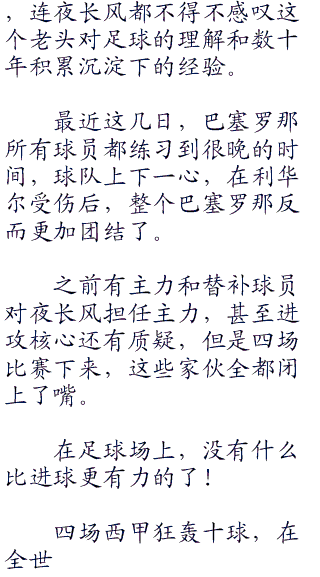 ，连夜长风都不得不感叹这
个老头对足球的理解和数十
年积累沉淀下的经验。
最近这几日，巴塞罗那
所有球员都练习到很晚的时
间，球队上下一心，在利华
尔受伤后，整个巴塞罗那反
而更加团结了。
之前有主力和替补球员
对夜长风担任主力，甚至进
攻核心还有质疑，但是四场
比赛下来，这些家伙全都闭
上了嘴。
在足球场上，没有什么
比进球更有力的了！
四场西甲狂轰十球，在
全世